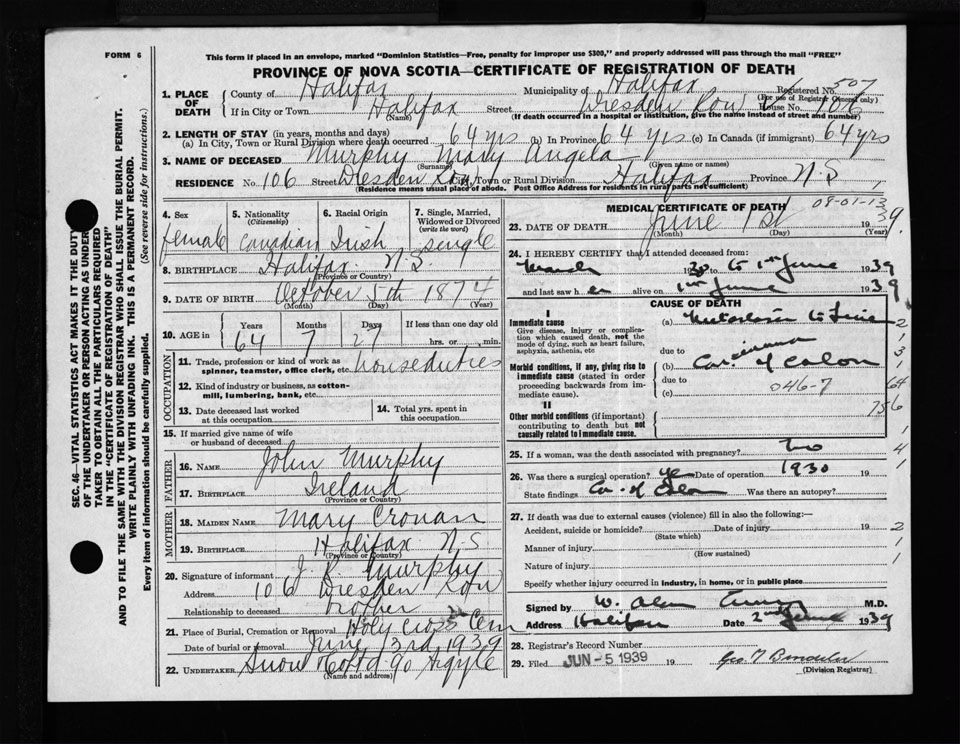 FORM 6
This form if placed in an envelope, marked "Dominion Statistics—Free, penalty for improper use $300," and properly addressed will pass through the mail "FREE"
PROVINCE OF NOVA SCOTIA—CERTIFICATE OF REGISTRATION OF DEATH
1. PLACE OF DEATH County of Halifax Municipality of Halifax Registered No. 507
(For use of Registrar General only)
If in City or Town Halifax Street Dresden Row House No. 106
(Name) (If death occurred in a hospital or institution, give the name instead of street and number)
2. LENGTH OF STAY (in years, months and days)
(a) In City, Town or Rural Division where death occurred 64 yrs (b) In Province 64 yrs (c) In Canada (if immigrant) 64 yrs
3. NAME OF DECEASED Murphy Mary Angela
(Surname) (Given name or names)
RESIDENCE No. 106 Street Dresden Row City, Town or Rural Division Halifax Province N.S
(Residence means usual place of abode. Post Office Address for residents in rural parts not sufficient)
4. Sex female
5. Nationality (Citizenship) Canadian
6. Racial Origin Irish
7. Single, Married, Widowed or Divorced (write the word) single
8. BIRTHPLACE Halifax N.S.
(Province or Country)
9. DATE OF BIRTH October 5th 1874
(Month) (Day) (Year)
10. AGE in Years 64 Months 7 Days 27 If less than one day old hrs. or min.
OCCUPATION
11. Trade, profession or kind of work as spinner, teamster, office clerk, etc. houseduties
12. Kind of industry or business, as cotton-mill, lumbering, bank, etc.
13. Date deceased last worked at this occupation
14. Total yrs. spent in this occupation
15. If married give name of wife or husband of deceased
FATHER
16. NAME John Murphy
17. BIRTHPLACE Ireland
(Province or Country)
MOTHER
18. MAIDEN NAME Mary Cronan
19. BIRTHPLACE Halifax N.S
(Province or Country)
20. Signature of informant Murphy
Address 106 Dresden Row
Relationship to deceased brother
21. Place of Burial, Cremation or Removal Holy Cross Cem
Date of burial or removal June 3rd 1939
22. UNDERTAKER Snow 90 Argyle
(Name and address)
MEDICAL CERTIFICATE OF DEATH
08-01-13
23. DATE OF DEATH June 1st 1939.
(Month) (Day) (Year)
24. I HEREBY CERTIFY that I attended deceased from
March 1930 to 1st June 1939
and last saw her alive on 1st June 1939
CAUSE OF DEATH
I
Immediate cause (a)
Give disease, injury or complication which caused death, not the mode of dying, such as heart failure, asphyxia, asthenia, etc
due to
Morbid conditions, if any, giving rise to immediate cause (stated in order proceeding backwards from immediate cause).
(b) Carcinoma of Colon
due to
(c) 046-7
II
Other morbid conditions (if important) contributing to death but not causally related to immediate cause.
25. If a woman, was the death associated with pregnancy? no
26. Was there a surgical operation? yes Date of operation 1930 19
State findings Ca. of Colon Was there an autopsy?
27. If death was due to external causes (violence) fill in also the following:—
Accident, suicide or homicide? Date of injury 19
(State which)
Manner of injury
(How sustained)
Nature of injury
Specify whether injury occurred in industry, in home, or in public place
Signed by W. Alan M.D.
Address Halifax Date 2nd June 1939
28. Registrar's Record Number
29. Filed JUN - 5 1939 19
(Division Registrar)
SEC. 46—VITAL STATISTICS ACT MAKES IT THE DUTY
OF THE UNDERTAKER OR PERSON ACTING AS UNDER-
TAKER TO OBTAIN ALL THE PARTICULARS REQUIRED
IN THE "CERTIFICATE OF REGISTRATION OF DEATH"
AND TO FILE THE SAME WITH THE DIVISION REGISTRAR WHO SHALL ISSUE THE BURIAL PERMIT.
WRITE PLAINLY WITH UNFADING INK. THIS IS A PERMANENT RECORD.
Every item of information should be carefully supplied. (See reverse side for instructions.)